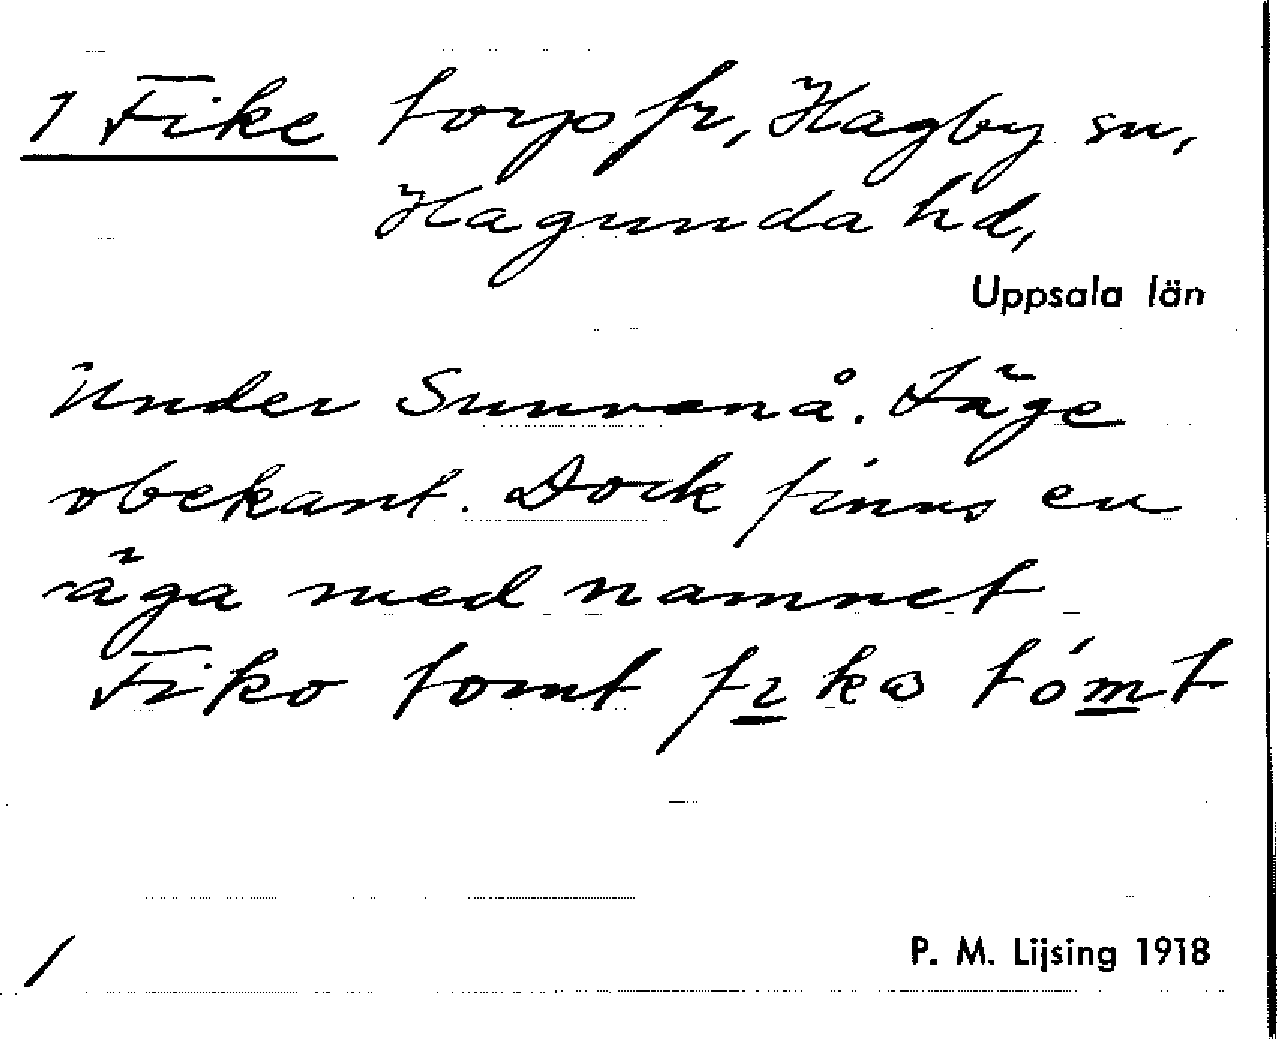 1 Fike torp fr, Hagby sn,
Hagunda hd,
Uppsala län
Under Sunnanå. Läge
obekant. Dock finns en
äga med namnet
Fiko tomt
P. M. Lijsing 1918